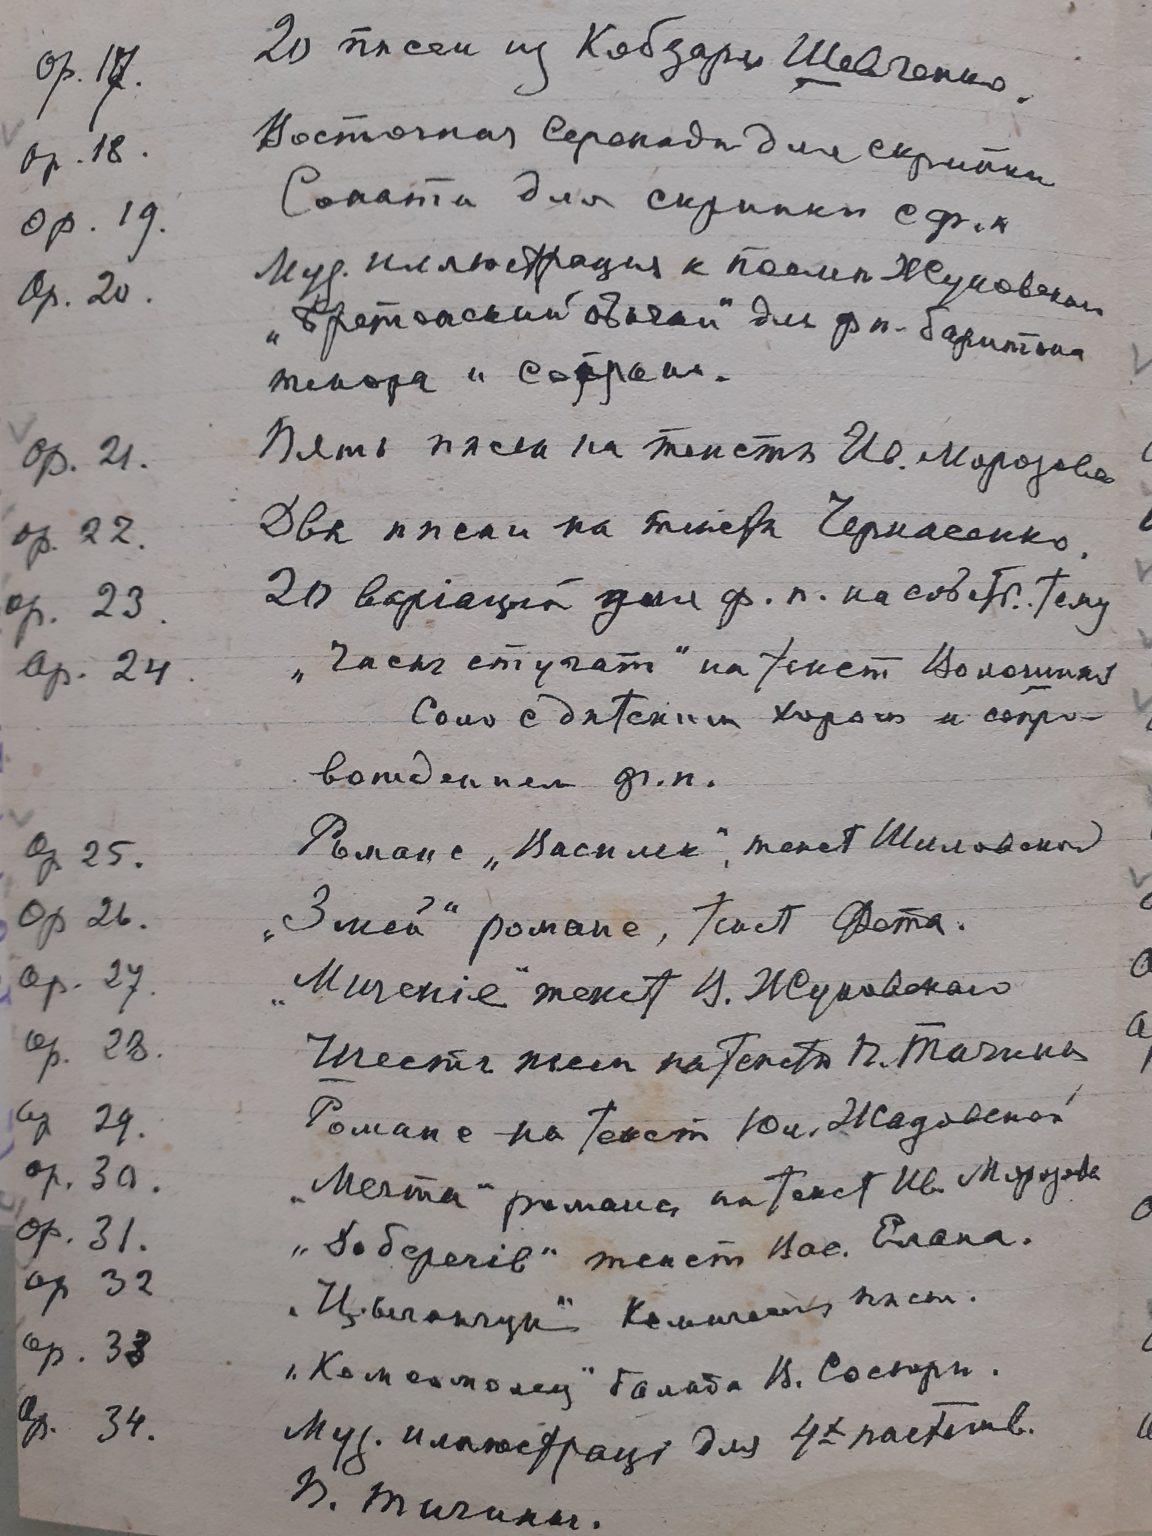 Op. 17. 20 пісен из Кобзаря Шевченко.
Op. 18. Восточная Серенада для скрипки
Op. 19. Соната для скрипки с ф.п
Op. 20. Муз. иллюстрация к поэмѣ Жуковскаго
„Бретонский обычай" для фп. баритона
тенора и сопрано.
Op. 21. Пять пѣсен на текстъ Ив. Морозова
Op. 22. Двѣ пѣсни на текстъ Черкасенко.
Op. 23. 20 варіацій для ф. п. на собств. тему
Op. 24. „Часы стучат" на текст Волошина
Соло с дѣтским хором и сопро-
вождением ф.п.
Op 25. Романс „Василек", текст Шиловской
Op 26. „Змей" романс, текст Фета.
Op. 27. „Мщеніе" текст В. Жуковскаго
Op. 28. Шесть пѣсен на текстъ П. Тычины
Op 29. Романс на текст Юл. Жадовской
Op. 30. „Мечта" романс на текст Ив. Морозова
Op. 31. „До берегів" текст Вас. Елана.
Op 32 „Цыганчук" Комическая пѣсн.
Op. 33 „Комсомолец" балада В. Сосюри.
Op. 34. Муз. иллюстрації для 4х
П. Тичины.